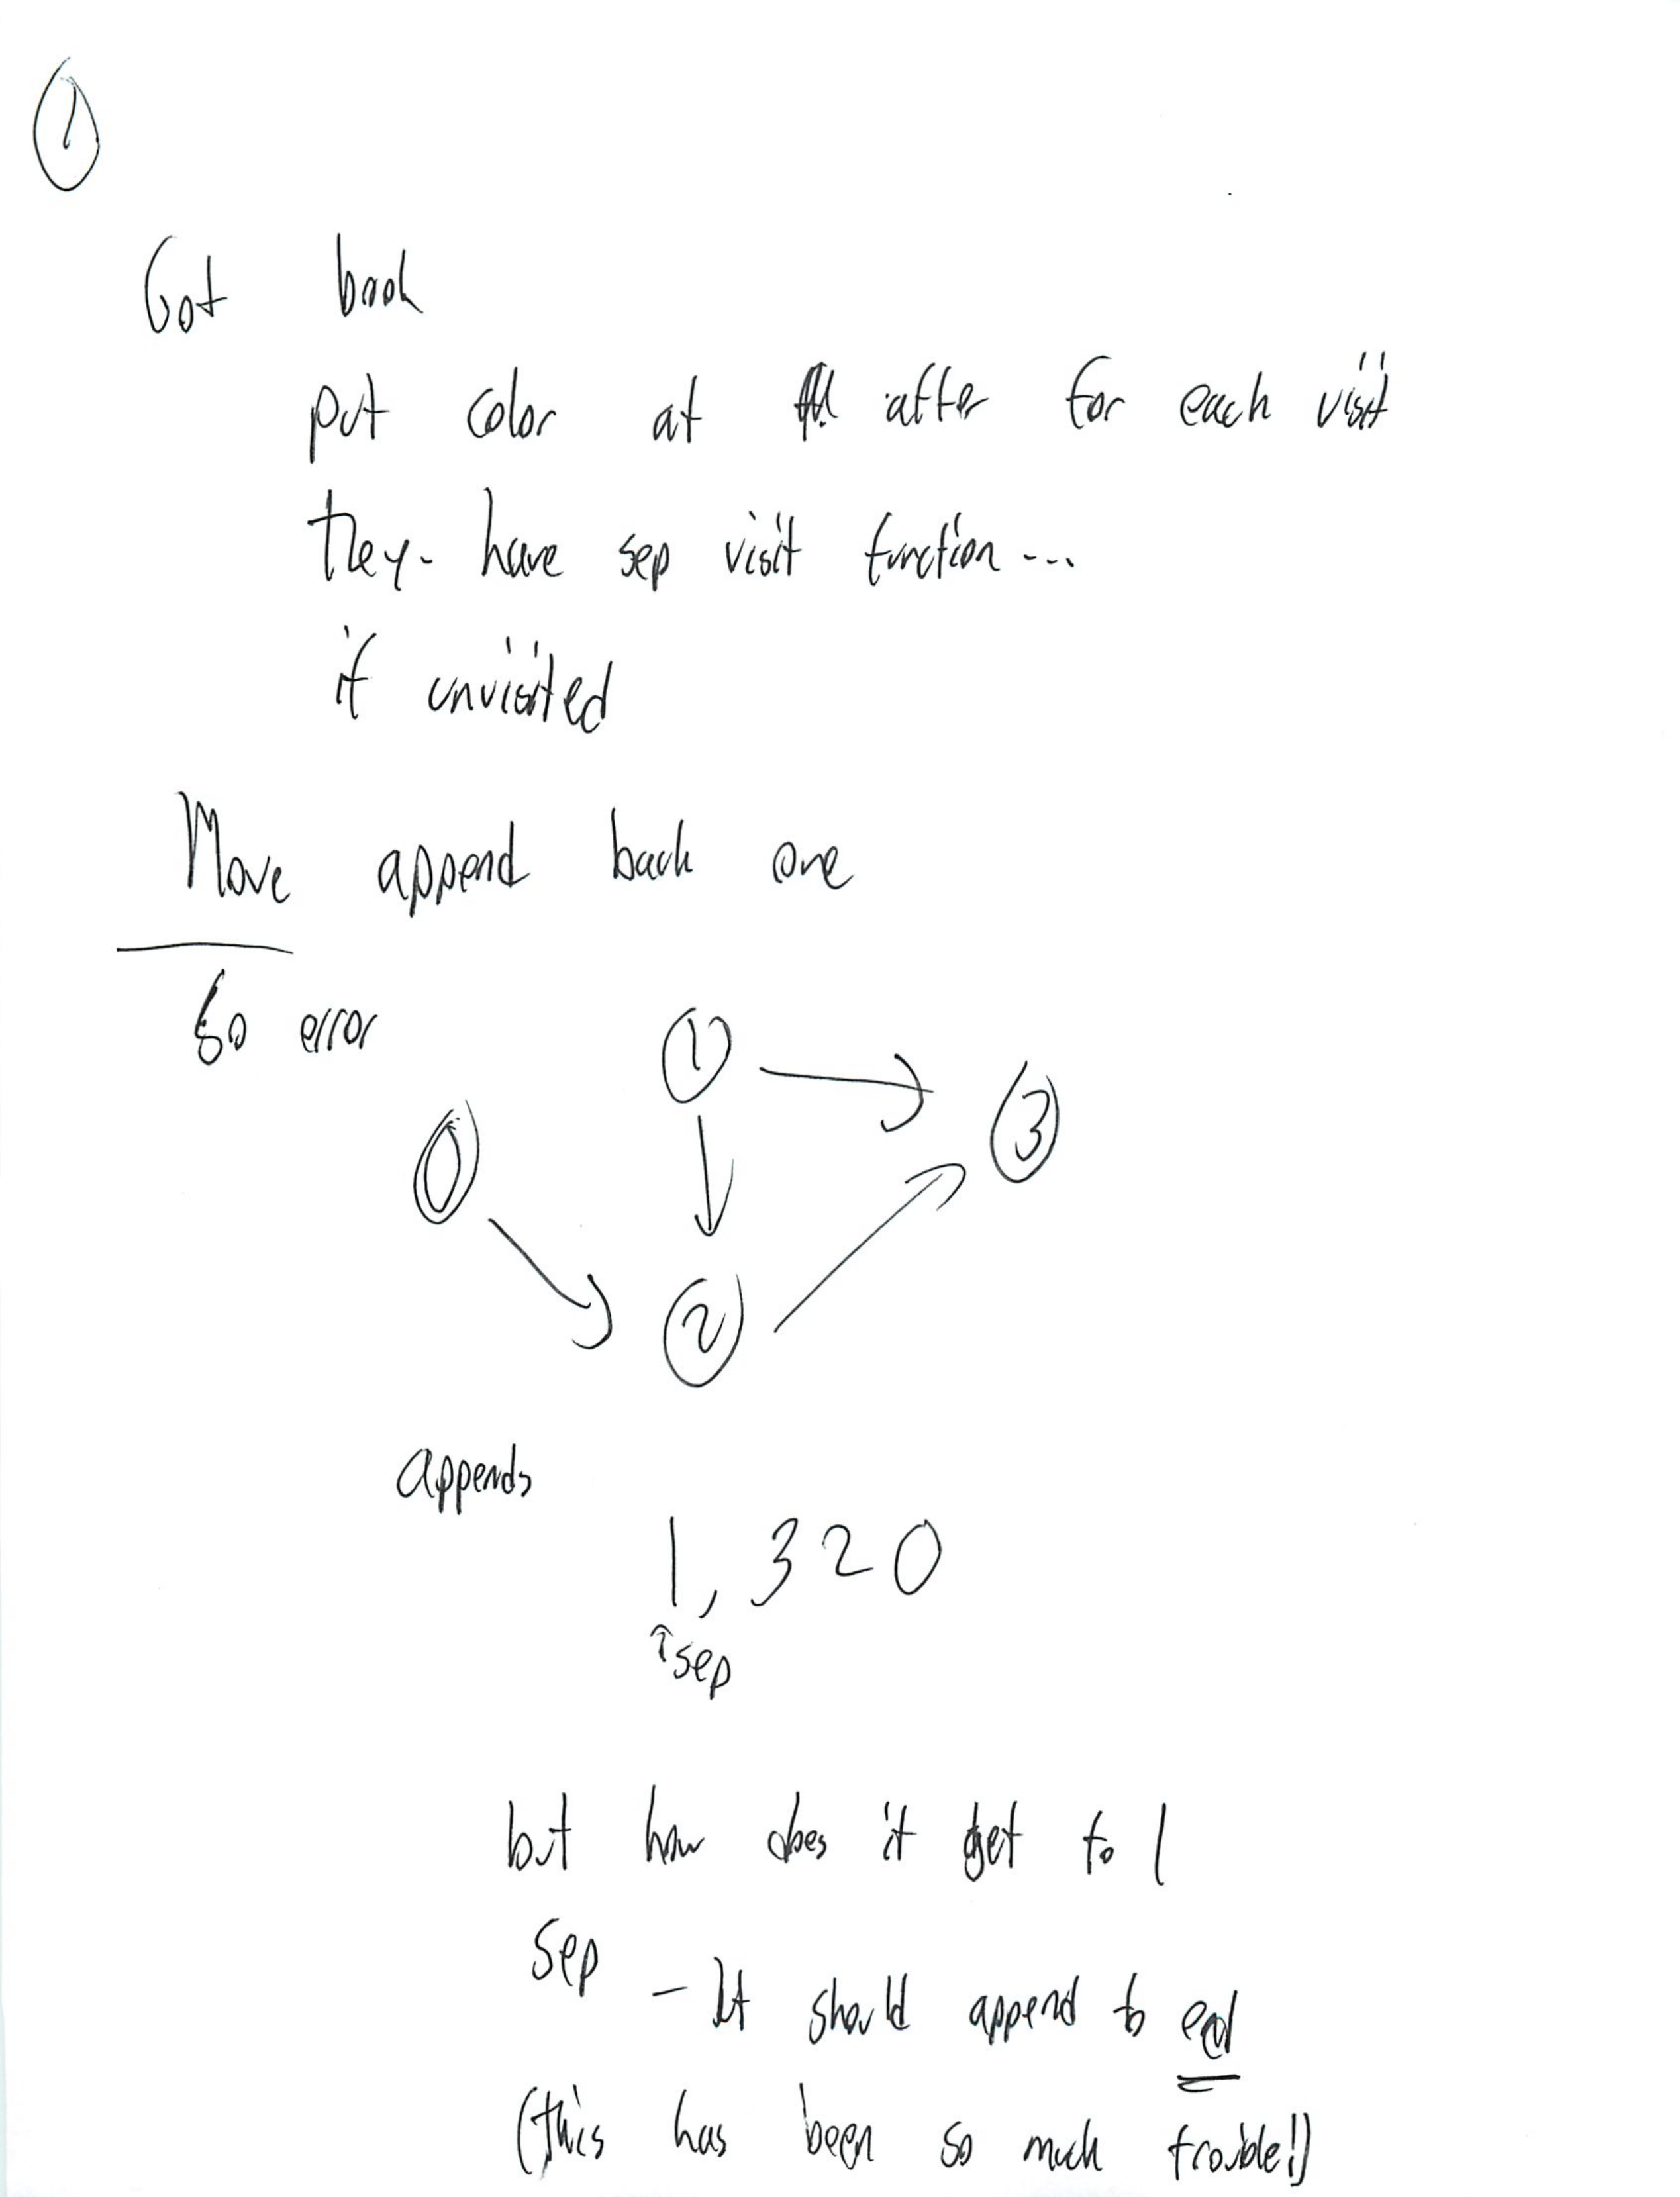 1
Got book
put color at after for each visit
they - have sep visit function ...
if unvisited
Move append back one
So error
1
3
0
2
appends
1, 3 2 0
↑sep
but how does it get to 1
sep - It should append to end
(this has been so much trouble!)